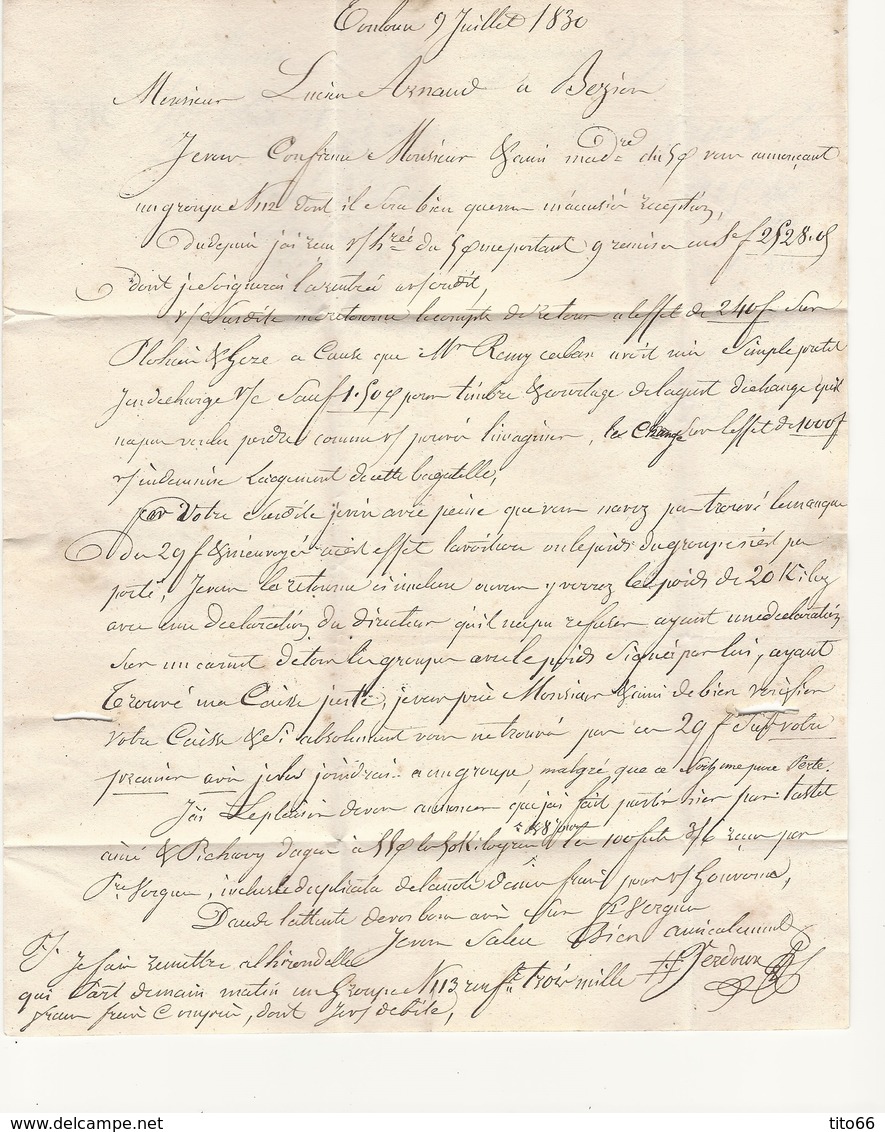 9 Juillet 1830
Monsieur Lucien Arnaud a
Je vous Confirme Monsieur & ami ma du 5 vous annonçant
un groupe N 112 dont il sera bien que vous m'accusié reception,
Du depuis j'ai reçu v/ h du me portant 9 remises en Sf 2528.05
dont je soignerai la rentrée
v/ susdite me retourne le compte de retour a l'effet de 240f Sur
& Geze a Cause que Mr Remy avoit mis Simple
Jen decharge v/c Sauf 1.50 pour timbre & courtage de l'agent d'echange qui
na pas voulu perdre comme v/ pouvés l'imaginer, le Change Sur l'effet de 1000f
v/ indemnise Largement de cette bagatelle,
par Votre susdite je vois avec peine que vous navez pas trouvé le manque
De 29f & m'envoyer a cet effet la voiture ou le poids du groupe n'est pas
porté, Je vous la retourne ci incluse ou vous y verrez le poids de 20 Kilog
avec une declaration du directeur qu'il na pu refuser ayant une declaration
Sur un carnet de tous les groupes avec le poids Signé par lui, ayant
Trouvé ma Caisse juste, je vous prie Monsieur & ami de bien verifier
Votre Caisse & Si absolument vous ne trouvé pas ces 29f Sur votre
premier avis je les joindrai a un groupe malgré que ce Soit une pure Perte.
J'ai Le plaisir de vous annoncer que j'ai fait partir hier par tastet
ainé & Pichary d'agen a 55 les 50 Kilogram les 100 futs 3/6 reçus par
Pre Vergnes, incluse le duplicata de la note d'iceux frais pour v/ Gouverne,
Dans l'attente de vos bons avis Sur Pre Vergnes
Je vous Salue Bien amicalement
P.S. Je fais remettre a l'hirondelle
qui Part demain matin un Groupe N 113 trois mille
francs frais Compris, dont Je v/ debite,
tito66